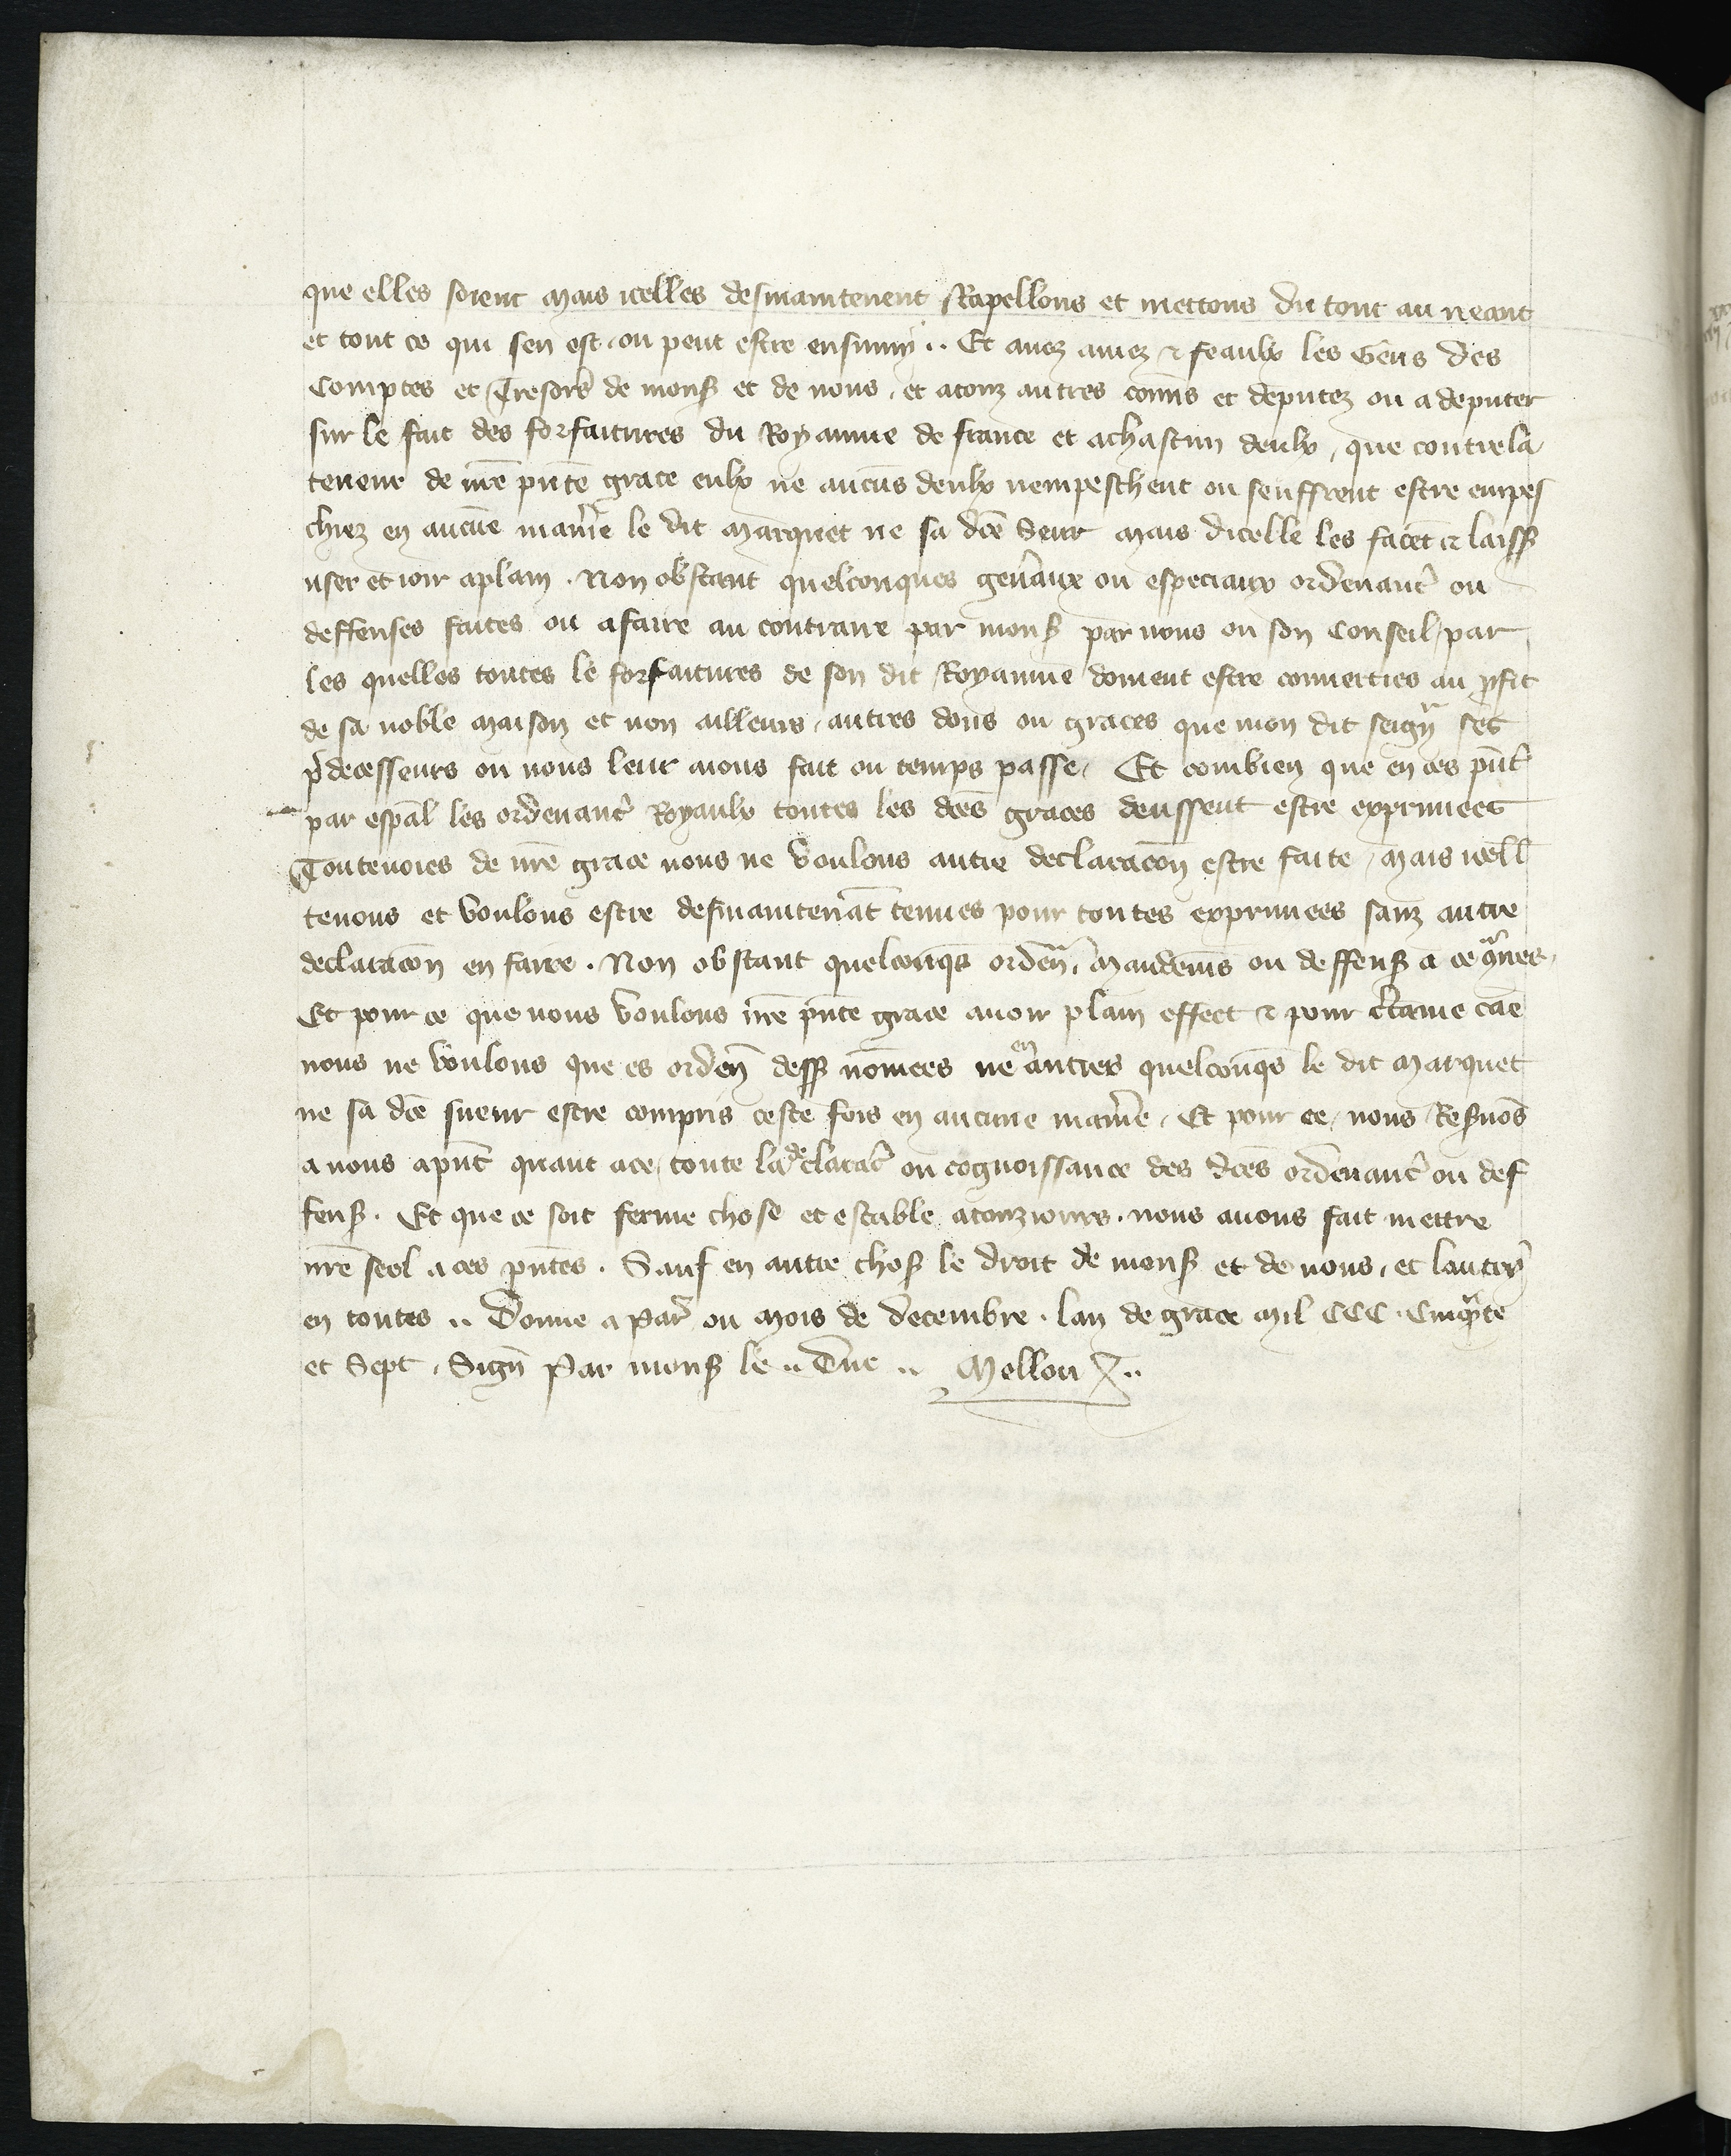 que elles soient mais icelles desmaintenent Rapellons et mettons du tout au neant
et tout ce qui sen est ou peut estre ensuiuy .. Et auez amez ⁊ feaulx les Gens des
Comptes et Tresors̉ de mons̉ et de nous, et atouz autres com̄is et deputez ou a deputer
sur le fait des forfaitures du Royaume de france et achascun deulx, que contre la
teneur de nr̄e pn̄te grace eulx ne aucūs deulx nempeschent ou seuffrent estre empes
chiez en aucūe mani̓e le dit Marquet ne sa dc̄e Seur Mais dicelle les facēt ⁊ laiss̉
user et ioir aplain . Non obstant quelconques gen̓aux ou especiaux ordenanc̓ ou
deffenses faites ou afaire au contraire par mons̉ par nous ou son Conseil, par
les quelles toutes le forfaitures de son dit Royaume doiuent estre conuerties au ꝓfit
de sa noble maison et non ailleurs, autres dons ou graces que mon dit seignr̄ ses
p̓decesseurs ou nous leur aions fait ou temps passe, Et combien que en ces pn̄t̓
par esp̄al les ordenanc̓ Royaulx toutes les dc̄es graces deussent estre exprimees
Toutenoies de nr̄e grace nous ne voulons autre declaracōn estre faite, Mais icell̓
tenons et voulons estre desmaintenāt tenues pour toutes exprimees sanz autre
declaracōn en faire . Non obstant quelconq̄s ordenn̄, Mandem̄s ou deffens̉ a ce ꝯr̄es,
Et pour ce que nous voulons nr̄e pn̄te grace auoir plain effect ⁊ pour c̓taine cāe
nous ne voulons que es ordenn̄ dess̉ nōmees ne en autres quelconq̄s le dit Marquet
ne sa dc̄e sueur estre compris ceste fois en aucune mani̓e, Et pour ce, nous Res̓uōs
a nous apn̄t quant ace, toute la declarac̓ ou cognoissance des dc̄es ordenanc̓ ou def
fens̉ . Et que ce soit ferme chose et estable atouziours . nous auons fait mettre
nr̄e seel a ces pn̄tes . Sauf en autre chos̉ le droit de mons̉ et de nous, et lautrȳ
en toutes .. Donne a Par̓ ou Mois de Decembre . lan de grace Mil CCC . Cinqᵃ̄te
et Sept . Sign̄ Par mons̉ le .. Duc .. Mellou ..